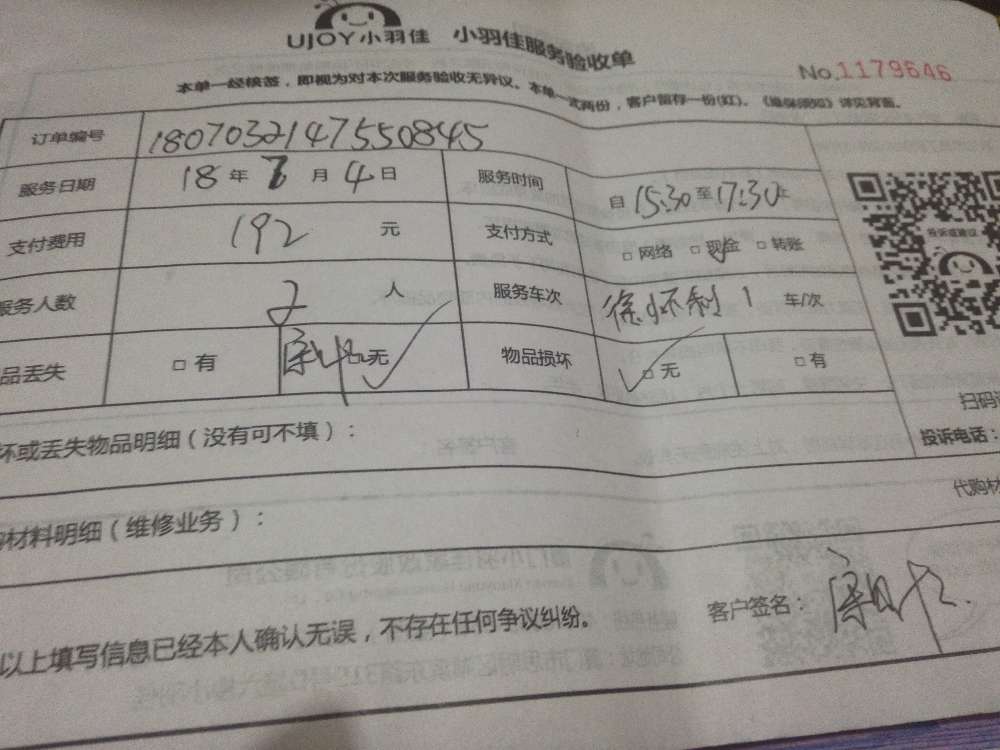 UJOY小羽佳 小羽佳服务验收单
No.1179646
本单一经核签，即视为对本次服务验收无异议。本单一式两份，客户留存一份(红)。《维保须知》详见背面。
订单编号 1807032147550845
服务日期 18年7月4日 服务时间 自15:30至17:30止
支付费用 192 元 支付方式 □网络 □现金 □转账
服务人数 2 人 服务车次 徐怀利 1 车/次
品丢失 □有 □无 物品损坏 □无 □有
坏或丢失物品明细（没有可不填）：
投诉或建议
扫码
投诉电话：
材料明细（维修业务）：
代购材
以上填写信息已经本人确认无误，不存在任何争议纠纷。
客户签名：